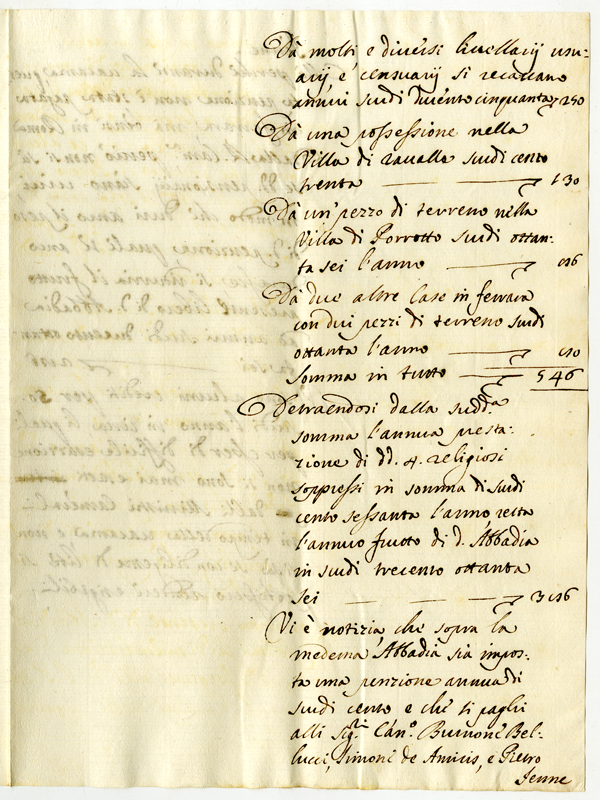 Dà molti e diversi livellarij usu-
arij e censuarij si recavano
annui scudi duento cinquanta 250
Dà una possessione nella
Villa di ravalle scudi cento
trenta 130
Dà un' pezzo di terreno nella
Villa di Porrotto scudi ottan-
ta sei l'anno 86
Dà due altre Case in ferrara
con dui pezzi di terreno scudi
ottanta l'anno 80
Somma in tutto 546
Detraendosi dalla sudd.ta
somma l'annua presta-
zione di dd. 4. religiosi
soppressi in somma di scudi
cento sessanta l'anno, resta
l'annuo frutto di d. Abbadia
in scudi trecento ottanta
sei 386
Vi è notizia, che sopra la
medema Abbadia sia impos-
ta una penzione annua di
scudi cento e che si paghi
alli Sig.ri Can.o Bel-
lucci, Simone de Amicis, e Pietro
Jenne